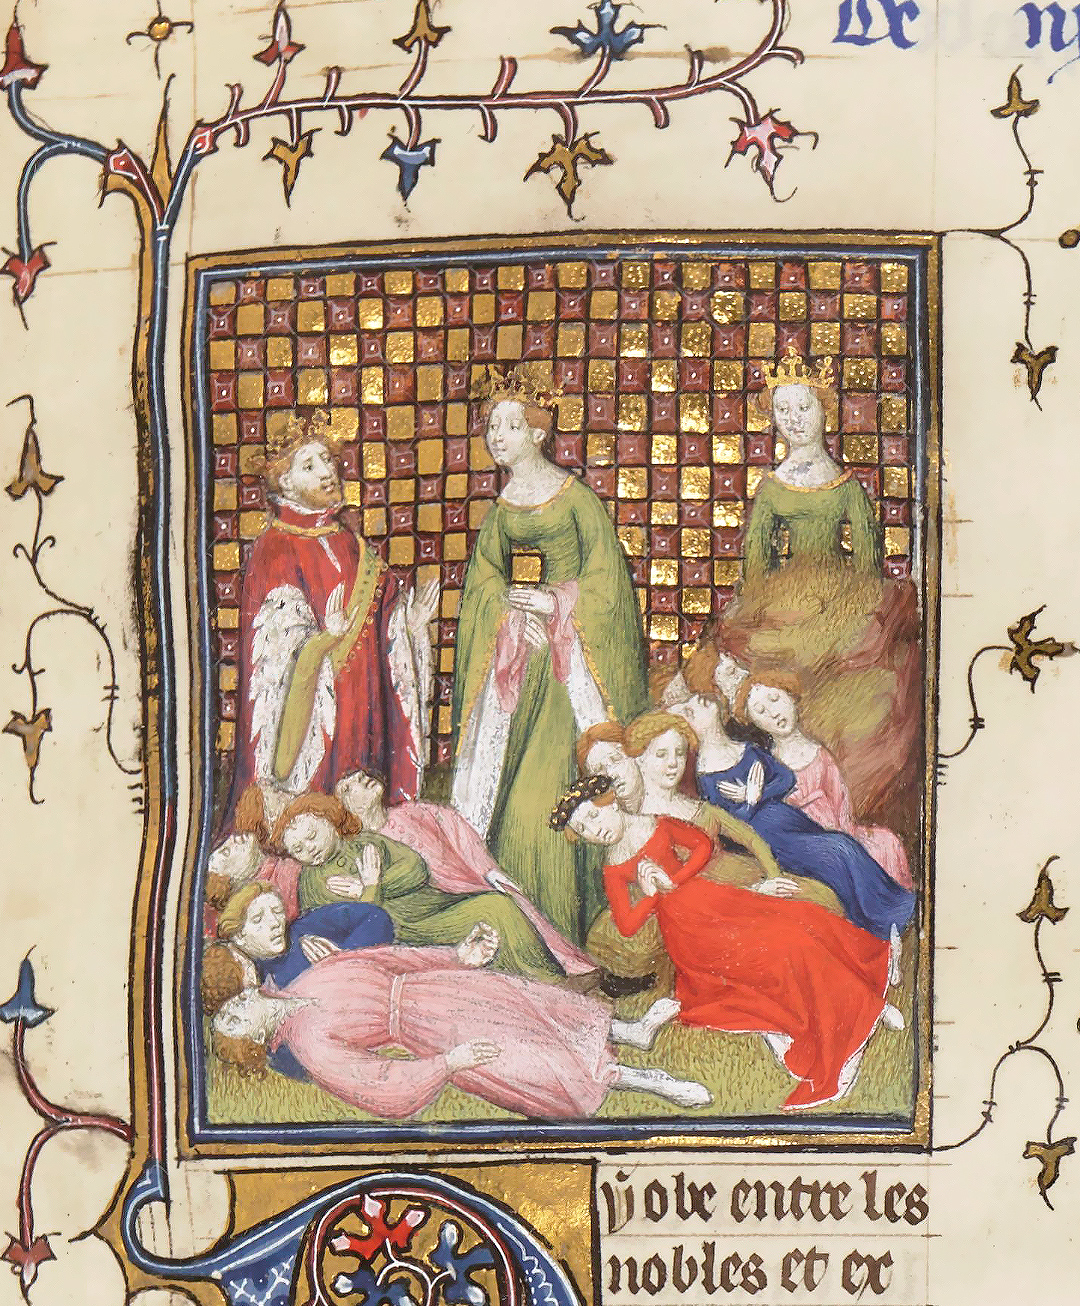 De
ÿobe entre les
nobles et ex